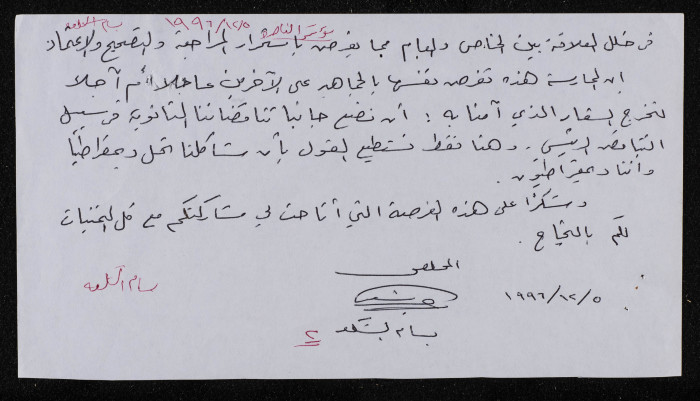 مؤتمر الناصرة ١٩٩٦/١٢/٥
في خلل العلاقة بين الخاص والعام مما يفرض باستمرار المراجعة والتصحيح والاعتماد
ان الممارسة هذه تفرض نفسها بالجماهير على الآخرين عاجلا أم آجلا
لنخرج بشعار الذي آمنا به: أن نضع جانبا تناقضاتنا الثانوية في سبيل
التناقض الرئيسي. وهنا فقط نستطيع القول بأن مشاكلنا تحل ديمقراطيا
وأننا ديمقراطيون.
وشكرا على هذه الفرصة التي أتاحت لي مشاركتكم مع كل التمنيات
لكم بالنجاح.
المخلص
١٩٩٦/١٢/٥
بسام الشكعة
بسام الشكعة
٢